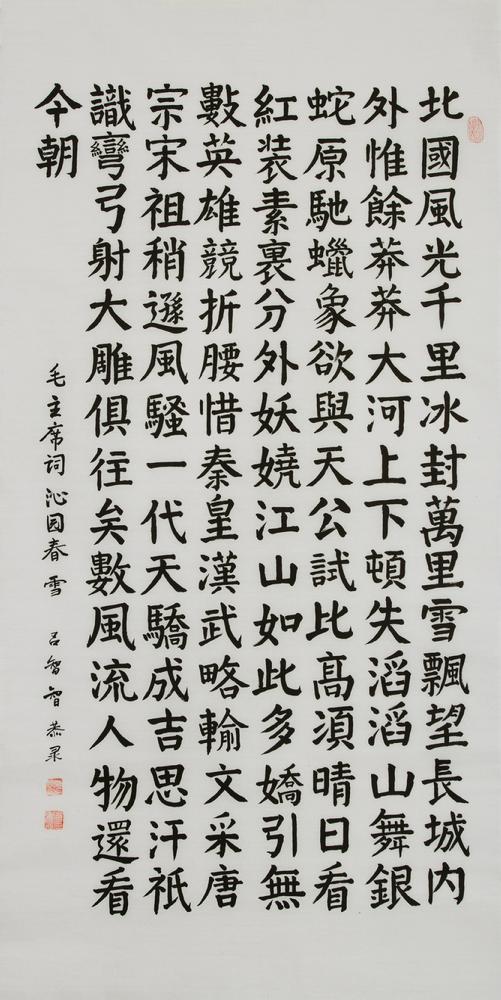 北國風光千里冰封萬里雪飄望長城内
外惟餘莽莽大河上下頓失滔滔山舞銀
蛇原馳蠟象欲與天公試比髙湏晴日看
紅装素裹分外妖嬈江山如此多嬌引無
數英雄競折腰惜秦皇漢武略輸文采唐
宗宋祖稍遜風騷一代天驕成吉思汗祇
識彎弓射大雕俱往矣數風流人物還看
今朝
毛主席词沁园春雪 吕智智恭录